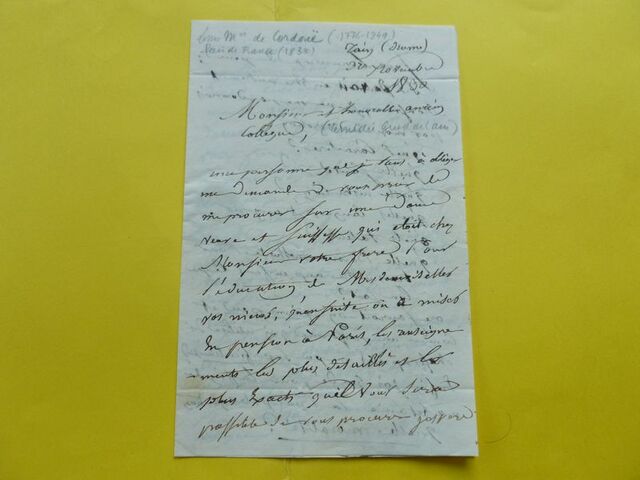 Mis de Cordoüë (1776-1849)
Pair de France (1830)
Tain (Drome)
9bre
1830
Monsieur et honorable ancien
Collegue,
une personne que je tiens à obliger
me demande de vous prier de
me procurer sur une Dame
veuve et Suissesse qui étoit chez
Monsieur votre frere pour
l'éducation de Mesdemoiselles
vos nieces, qu'ensuite on a mises
en pension à Paris, les renseigne
ments les plus detaillés et les
plus exacts qu'il vous sera
possible de vous procurer j'ose